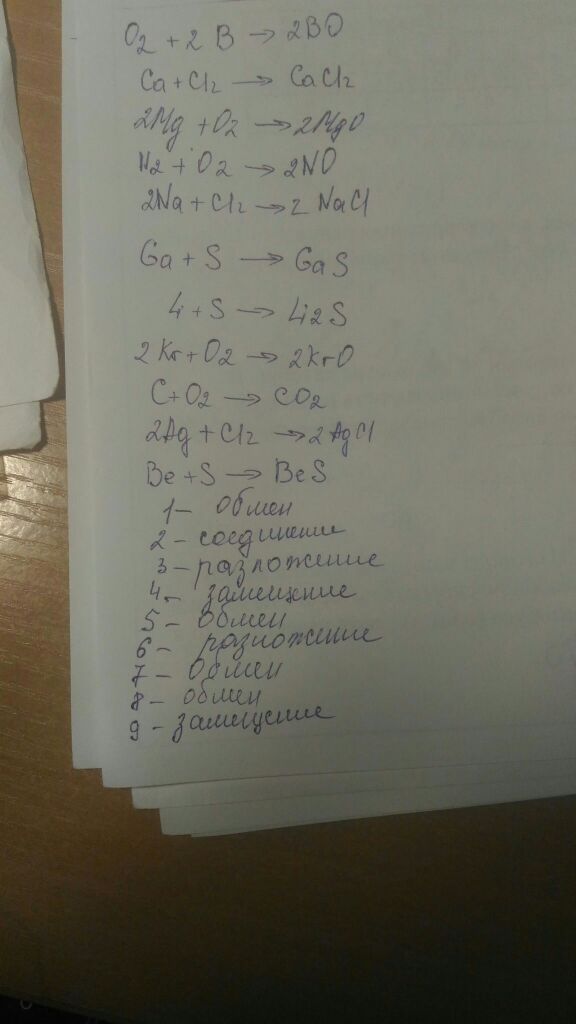 O2 + 2 B → 2BO
Ca + Cl2 → CaCl2
2Mg + O2 → 2MgO
N2 + O2 → 2NO
2Na + Cl2 → 2 NaCl
Ga + S → GaS
Li + S → Li2S
2 Kr + O2 → 2KrO
C + O2 → CO2
2Ag + Cl2 → 2AgCl
Be + S → BeS
1 – обмен
2 – соединение
3 – разложение
4 – замещение
5 – обмен
6 – разложение
7 – обмен
8 – обмен
9 – замещение